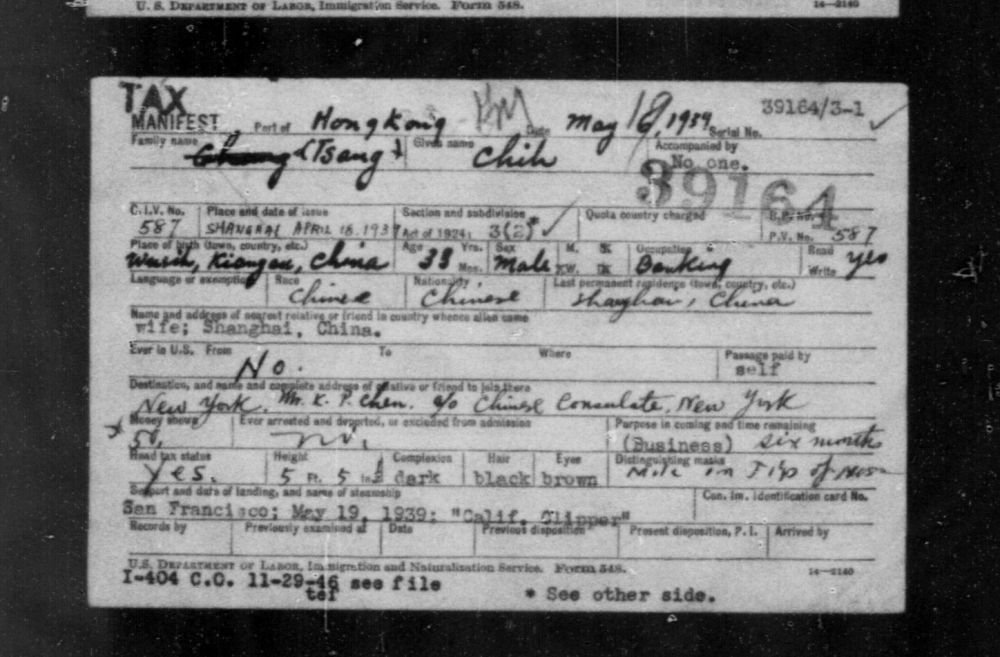 U. S. DEPARTMENT OF LABOR, Immigration Service. Form 548. 14—2140
TAX
MANIFEST Port of Hongkong Date May 1939 Serial No. 39164/3-1
Family name (Tsang) Given name Chih Accompanied by No one.
39164
C.I.V. No. 587 Place and date of issue SHANGHAI APRIL 18, 1939 Section and subdivision Act of 1924: 3(2)* Quota country charged P.V. No. 587
Place of birth (town, country, etc.) Wusih, Kiangsu, China Age 33 Yrs. Mos. Sex Male M. W. Occupation Banking Read Write Yes
Language or exemption Race Chinese Nationality Chinese Last permanent residence (town, country, etc.) Shanghai, China
Name and address of nearest relative or friend in country whence alien came
wife; Shanghai, China.
Ever in U.S. From No. To Where Passage paid by self
Destination, and name and complete address of relative or friend to join there
New York. Mr. K. P. Chen. c/o Chinese Consulate, New York
Money shown 50. Ever arrested and deported, or excluded from admission no. Purpose in coming and time remaining (Business) six months
Head tax status Yes. Height 5 Ft. 5 In. Complexion dark Hair black Eyes brown Distinguishing marks Mole on Tip of nose
Seaport and date of landing, and name of steamship Con. Im. Identification card No.
San Francisco; May 19, 1939; "Calif. Clipper"
Records by Previously examined at Date Previous disposition Present disposition, P.I. Arrived by
U.S. DEPARTMENT OF LABOR, Immigration and Naturalization Service. Form 548. 14—2140
I-404 C.O. 11-29-46 see file
tef * See other side.